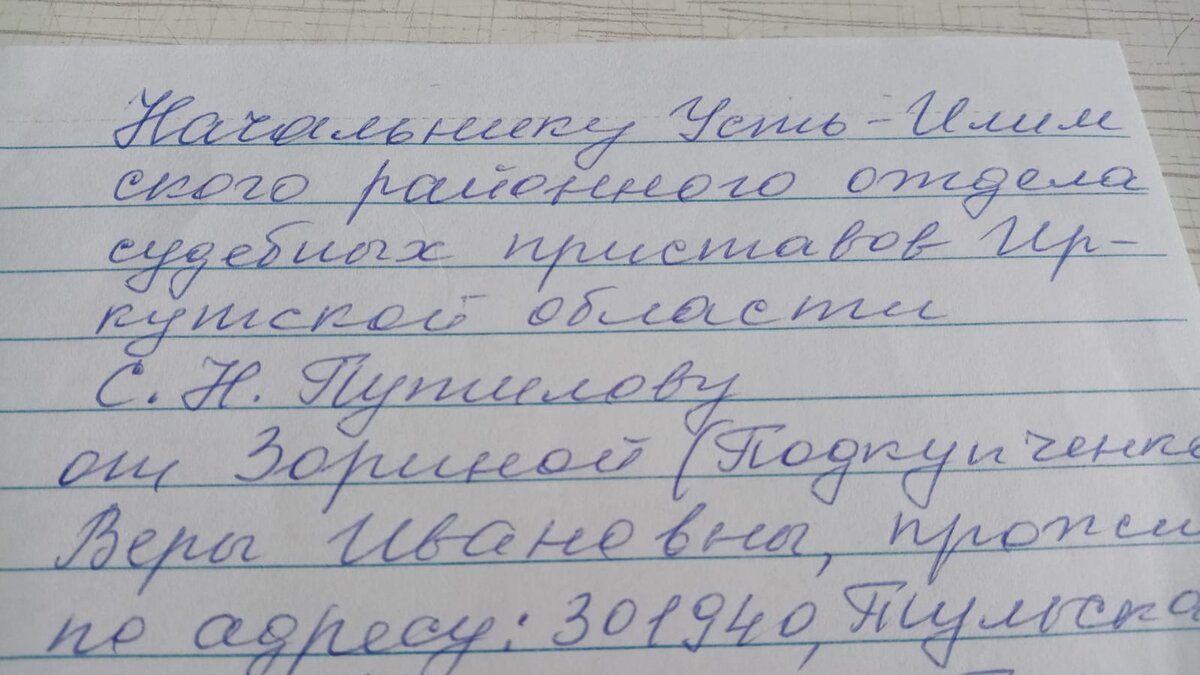 Начальнику Усть-Илим
ского районного отдела
судебных приставов Ир-
кутской области
С. Н. Путилову
от Зориной (Подкупченко
Веры Ивановны, прожи
по адресу: 301940, Тульска